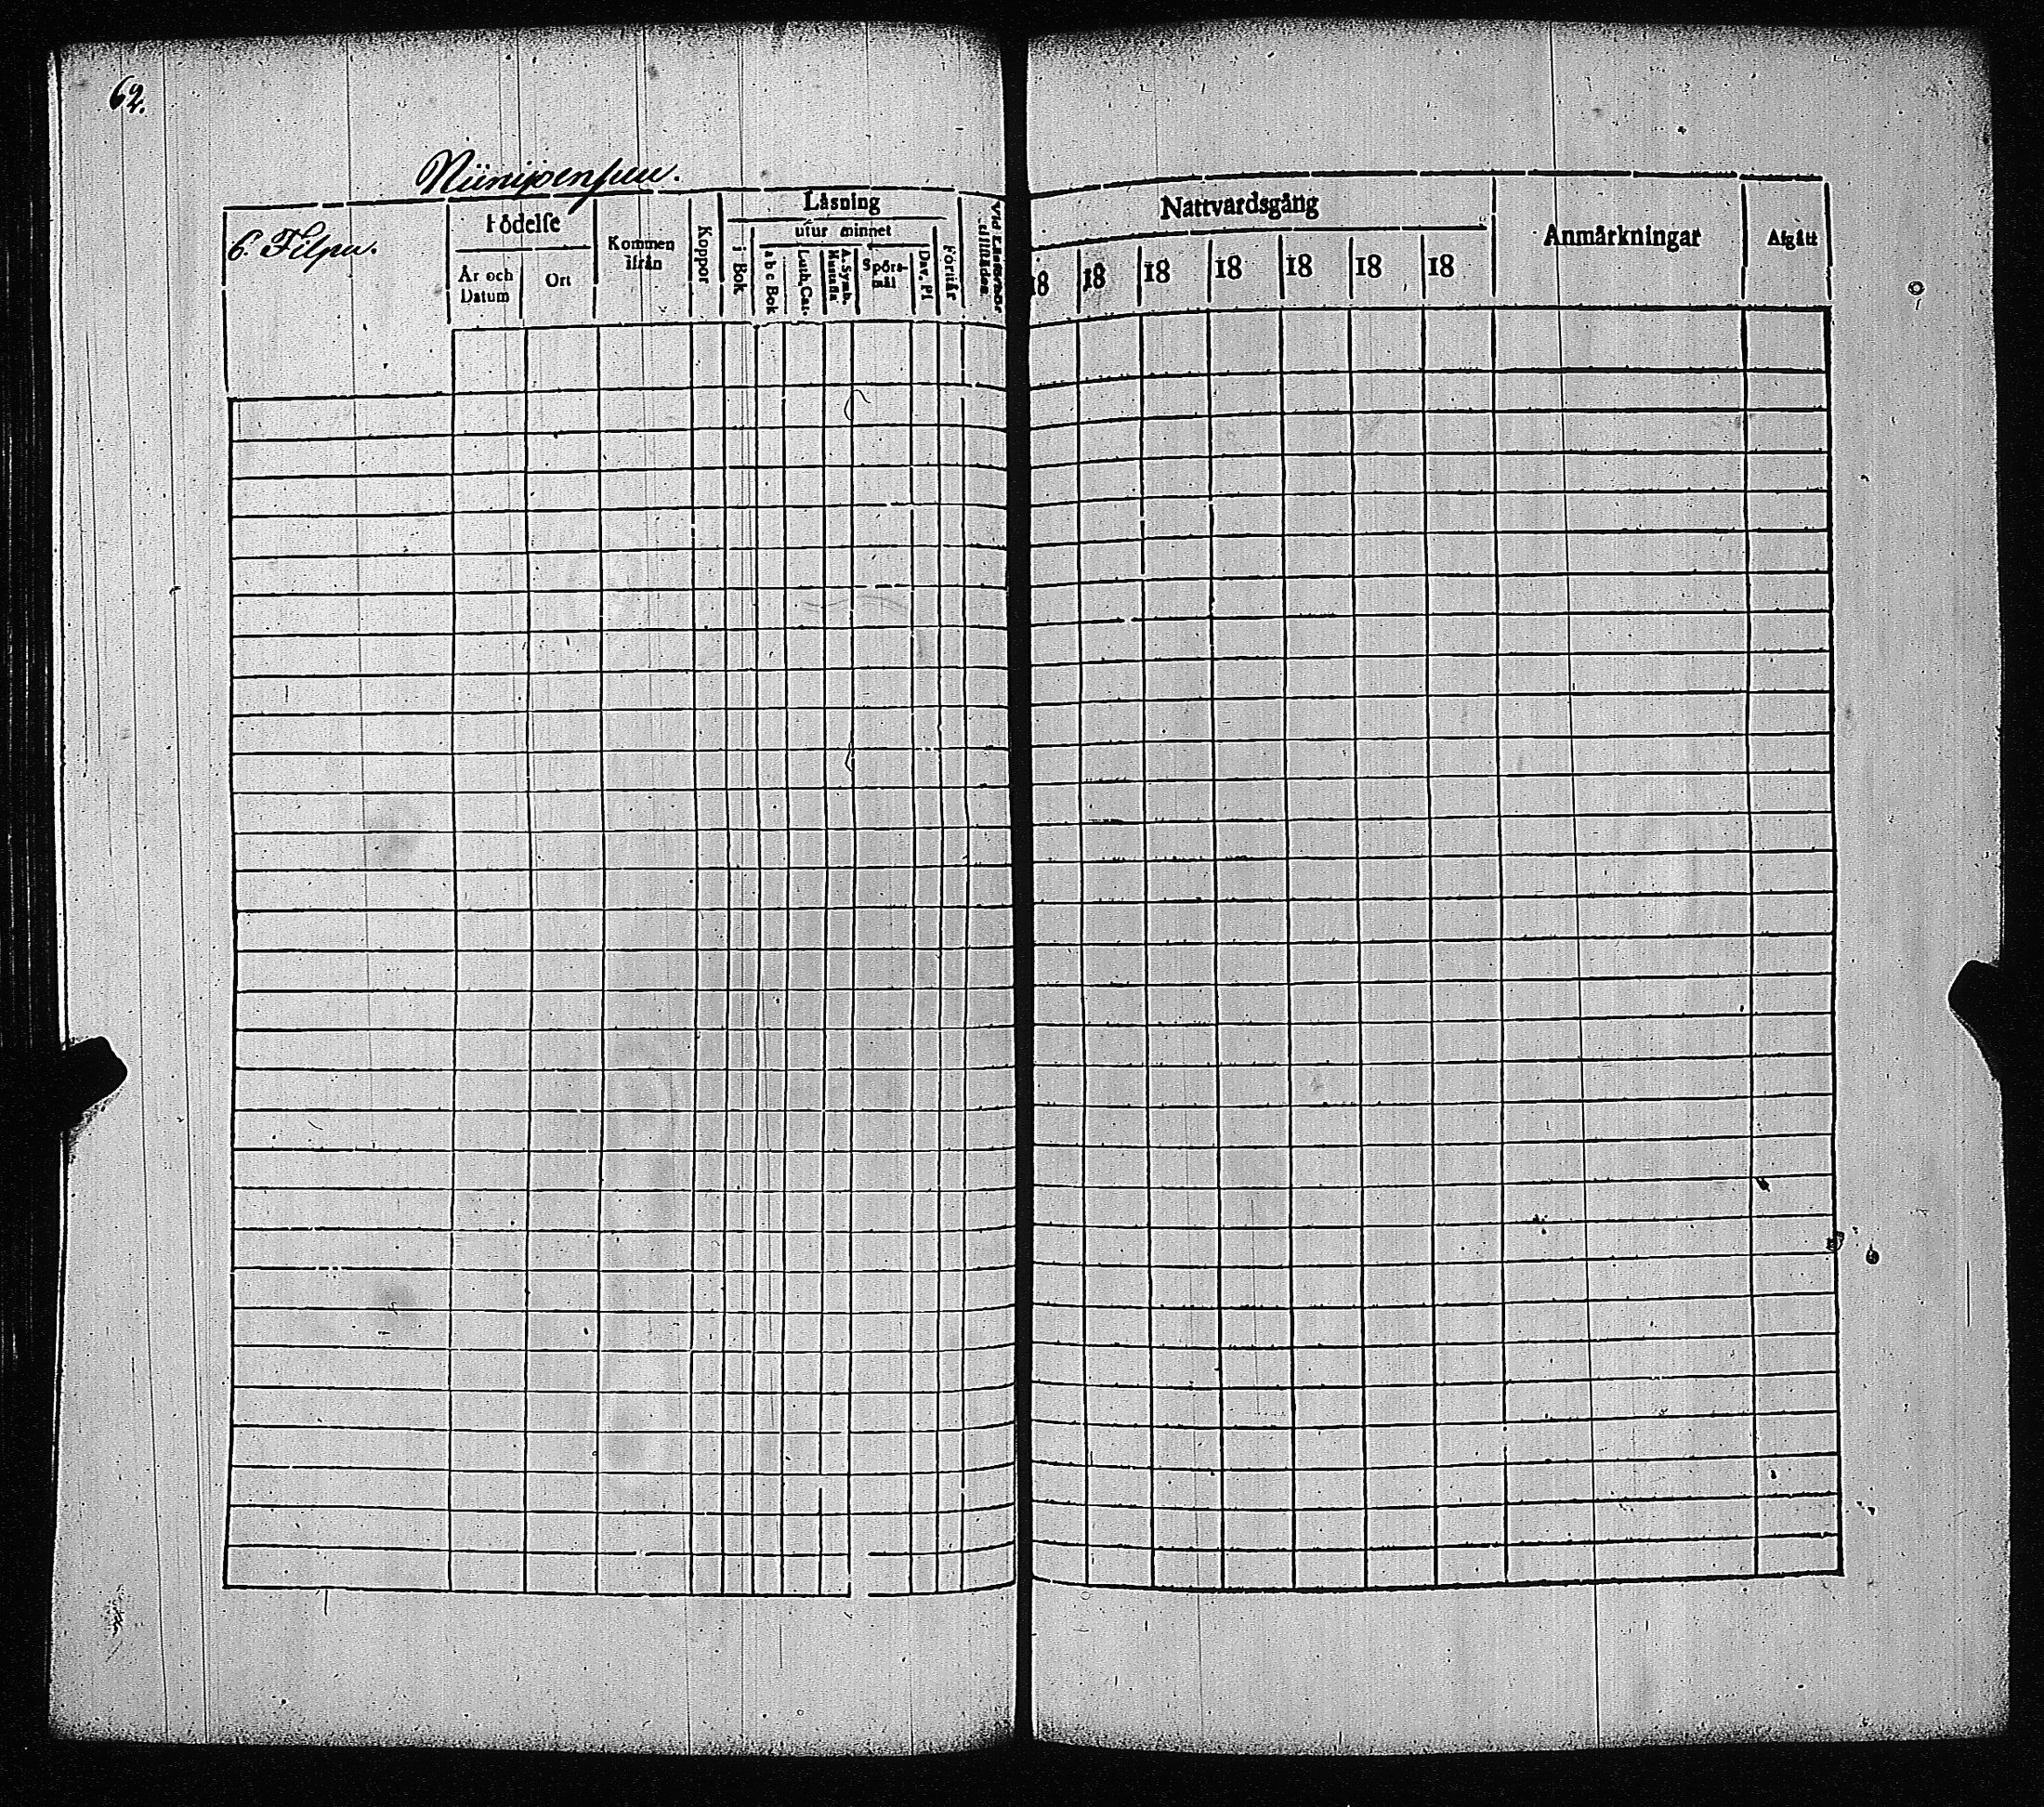 62.
Niinipensuu.
6. Filpu.
Födelse
År och Datum
Ort
Kommen ifrån
Koppor
Läsning
i Bok
utur minnet
a b c Bok
Luth. Cat.
A. Symb. Hustafla
Spörsmål
Dav. Ps
Förstår
Vid Läsförhör tillstädes
Nattvardsgång
18 18 18 18 18 18 18
Anmärkningar
Afgått